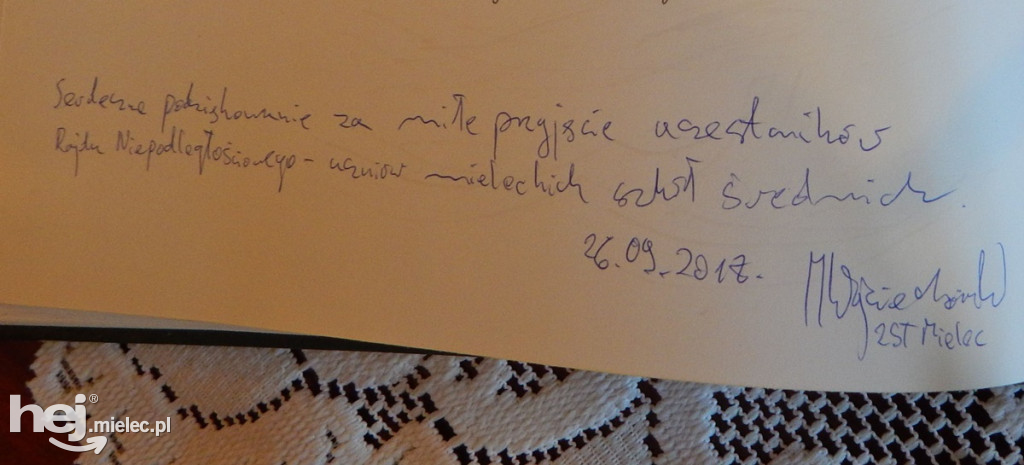 Serdeczne podziękowanie za miłe przyjście uczestników
Rajdu Niepodległościowego - uczniów mieleckich szkół średnich.
26.09.2017.
ZST Mielec
hej.mielec.pl